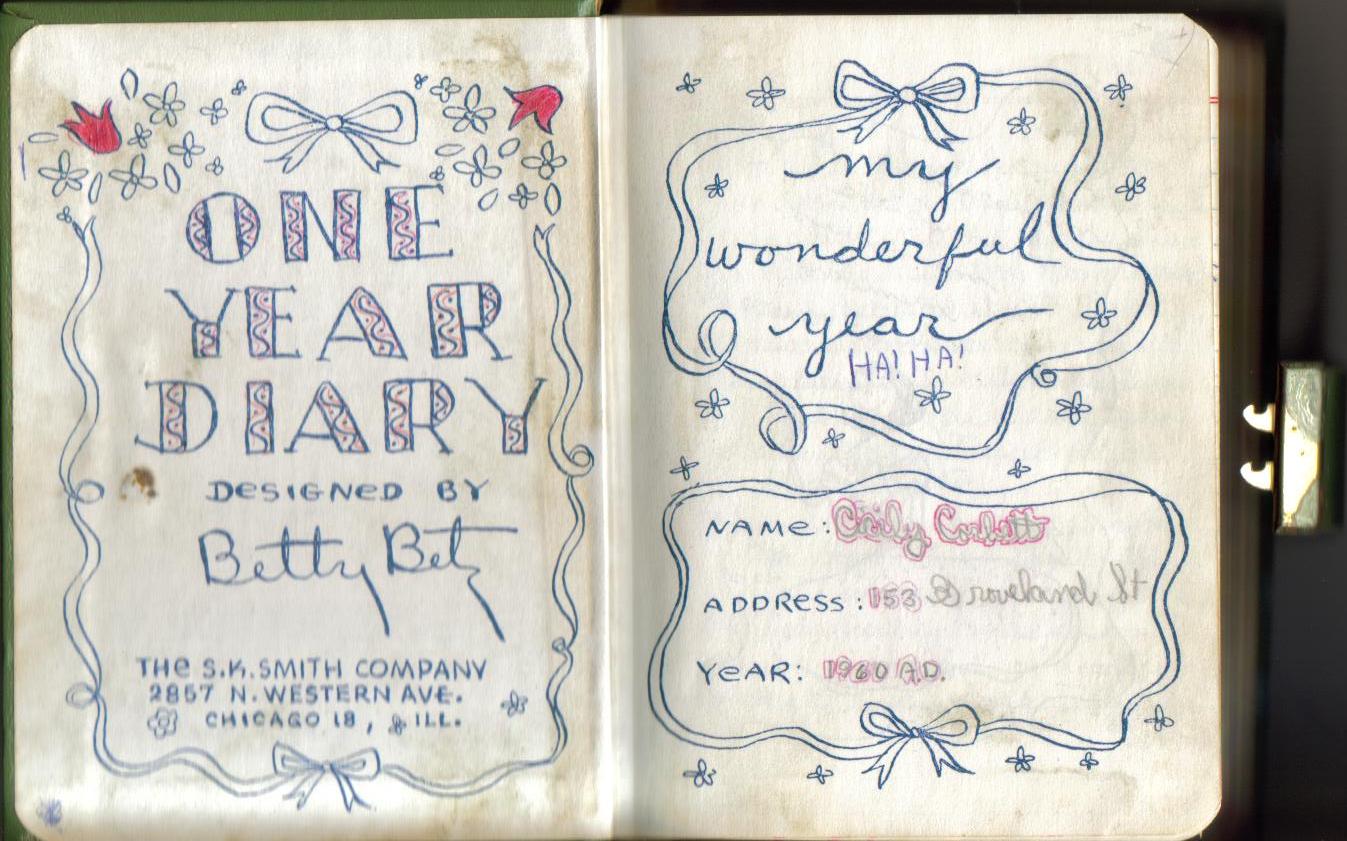 ONE
YEAR
DIARY
DESIGNED BY
Betty Betz
THE S.K. SMITH COMPANY
2857 N. WESTERN AVE.
CHICAGO 18, ILL.
my
wonderful
year
HA! HA!
NAME: Cicily Corbett
ADDRESS: 153 Groveland St
YEAR: 1960 A.D.